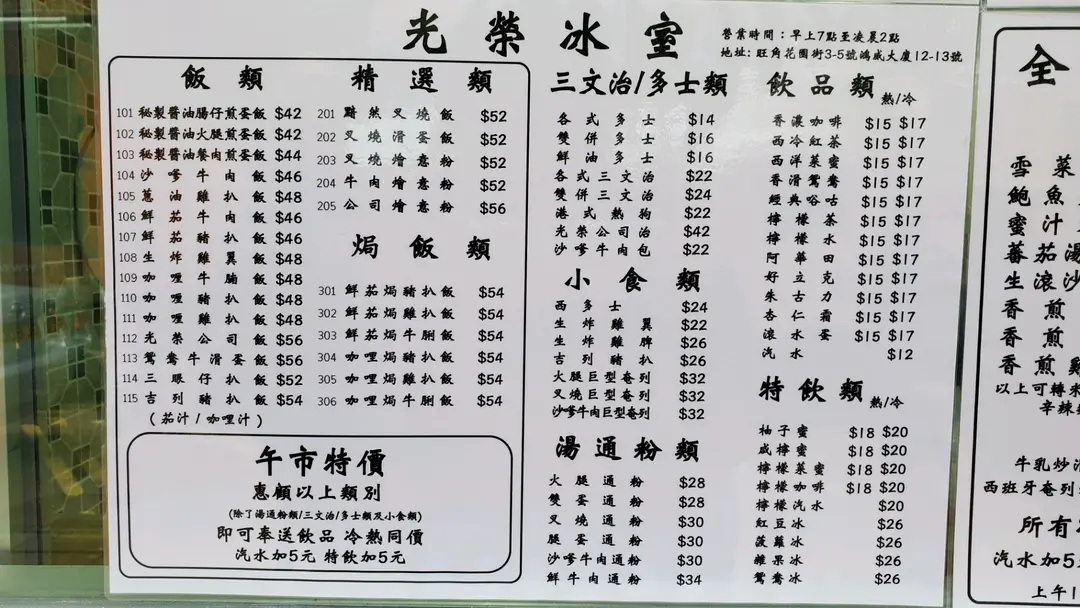 光榮冰室
營業時間：早上7點至凌晨2點
地址：旺角花園街3-5號鴻威大廈12-13號
飯類
101 秘製醬油腸仔煎蛋飯 $42
102 秘製醬油火腿煎蛋飯 $42
103 秘製醬油餐肉煎蛋飯 $44
104 沙嗲牛肉飯 $46
105 蔥油雞扒飯 $48
106 鮮茄牛肉飯 $46
107 鮮茄豬扒飯 $46
108 生炸雞翼飯 $48
109 咖喱牛腩飯 $48
110 咖喱豬扒飯 $48
111 咖喱雞扒飯 $48
112 光榮公司飯 $56
113 鴛鴦牛滑蛋飯 $56
114 三眼仔扒飯 $52
115 吉列豬扒飯 $54
（茄汁/咖哩汁）
精選類
201 黯然叉燒飯 $52
202 叉燒滑蛋飯 $52
203 叉燒燴意粉 $52
204 牛肉燴意粉 $52
205 公司燴意粉 $56
焗飯類
301 鮮茄焗豬扒飯 $54
302 鮮茄焗雞扒飯 $54
303 鮮茄焗牛脷飯 $54
304 咖哩焗豬扒飯 $54
305 咖哩焗雞扒飯 $54
306 咖哩焗牛脷飯 $54
午市特價
惠顧以上類別
(除了湯通粉類/三文治/多士類及小食類)
即可奉送飲品 冷熱同價
汽水加5元 特飲加5元
三文治/多士類
各式多士 $14
雙併多士 $16
鮮油多士 $16
各式三文治 $22
雙併三文治 $24
港式熱狗 $22
光榮公司治 $42
沙嗲牛肉包 $22
小食類
西多士 $24
生炸雞翼 $22
生炸雞髀 $26
吉列豬扒 $26
火腿巨型奄列 $32
叉燒巨型奄列 $32
沙嗲牛肉巨型奄列 $32
湯通粉類
火腿通粉 $28
雙蛋通粉 $28
叉燒通粉 $30
腿蛋通粉 $30
沙嗲牛肉通粉 $30
鮮牛肉通粉 $34
飲品類 熱/冷
香濃咖啡 $15 $17
西冷紅茶 $15 $17
西洋菜蜜 $15 $17
香滑鴛鴦 $15 $17
經典唂咕 $15 $17
檸檬茶 $15 $17
檸檬水 $15 $17
阿華田 $15 $17
好立克 $15 $17
朱古力 $15 $17
杏仁霜 $15 $17
滾水蛋 $15 $17
汽水 $12
特飲類 熱/冷
柚子蜜 $18 $20
咸檸蜜 $18 $20
檸檬菜蜜 $18 $20
檸檬咖啡 $18 $20
檸檬汽水 $20
紅豆冰 $26
菠蘿冰 $26
雜果冰 $26
鴛鴦冰 $26
全
雪菜
鮑魚
蜜汁
蕃茄湯
生滾沙
香煎
香煎
香煎雞
以上可轉
辛辣
牛乳炒
西班牙奄列
所有
汽水加5
上午1